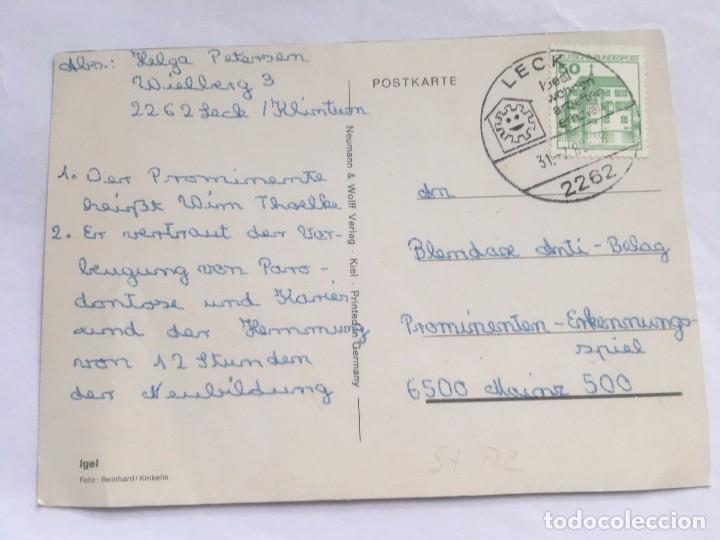 Abs.: Helga Petersen
Wielberg 3
2262 Leck / Klintum
1. Der Prominente
heißt Wim Thoelke
2. Er vertraut der Vor-
beugung von Paro-
dontose und Karies
und der Hemmung
von 12 Stunden
der Neubildung
Igel
Foto: Reinhard/Kinkelin
Neumann & Wolff Verlag · Kiel · Printed in Germany
POSTKARTE
LECK
Ideal
wohnen
31.-7.8
2262
50
DEUTSCHE BUNDESPOST
An
Blendax Anti-Belag
Prominenten-Erkennungs-
spiel
6500 Mainz 500
todocoleccion
todocoleccion.net